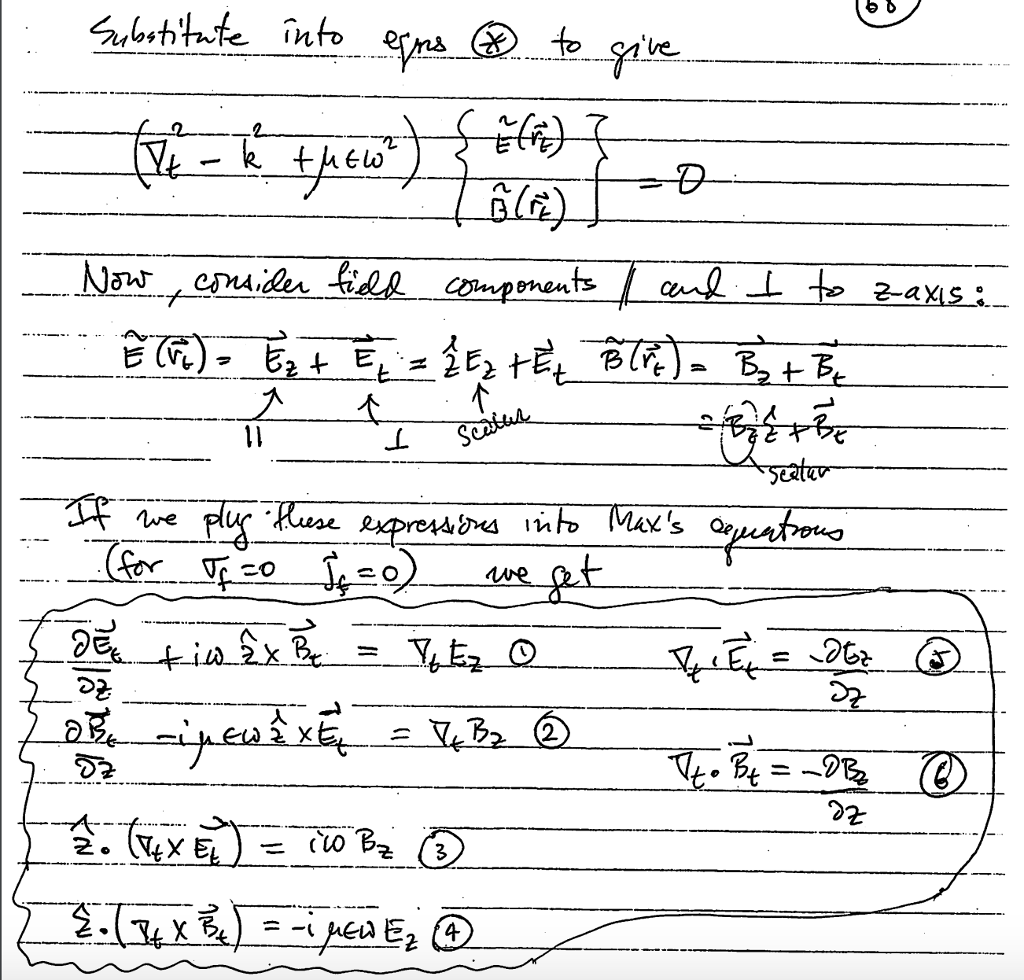 68
Substitute into eqns ⊛ to give
(∇ₜ² − k² + μεω²) { Ẽ(r⃗ₜ) B̃(r⃗ₜ) } = 0
Now, consider field components ∥ and ⊥ to z-axis:
Ẽ(r⃗ₜ) = E⃗_z + E⃗ₜ = ẑE_z + E⃗ₜ B̃(r⃗ₜ) = B⃗_z + B⃗ₜ
↗ ↑ ↑ = (B_z)ẑ + B⃗ₜ
∥ ⊥ scalar
scalar
If we plug these expressions into Max's equations
(for σ_f = 0 j⃗_f = 0) we get
∂E⃗ₜ/∂z + iω ẑ × B⃗ₜ = ∇ₜE_z ①
∇ₜ · E⃗ₜ = −∂E_z/∂z ⑤
∂B⃗ₜ/∂z − iμεω ẑ × E⃗ₜ = ∇ₜB_z ②
∇ₜ · B⃗ₜ = −∂B_z/∂z ⑥
ẑ · (∇ₜ × E⃗ₜ) = iω B_z ③
ẑ · (∇ₜ × B⃗ₜ) = −iμεω E_z ④